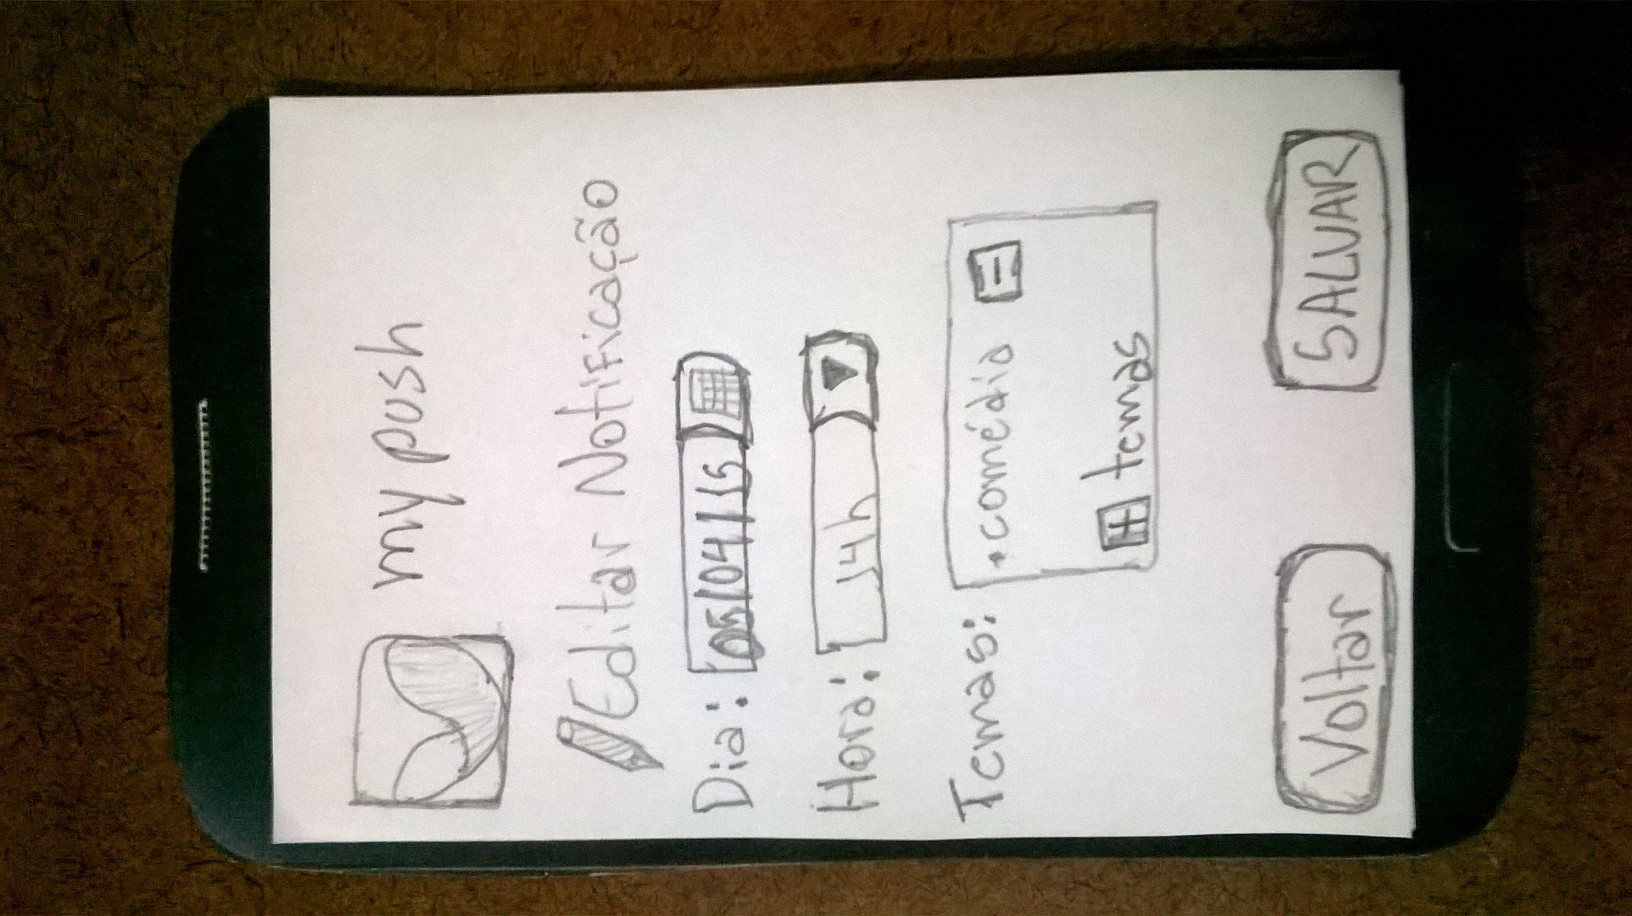 my push
Editar Notificação
Dia: 05/04/15
Hora: 14h
Temas: •comédia
temas
Voltar
SALVAR